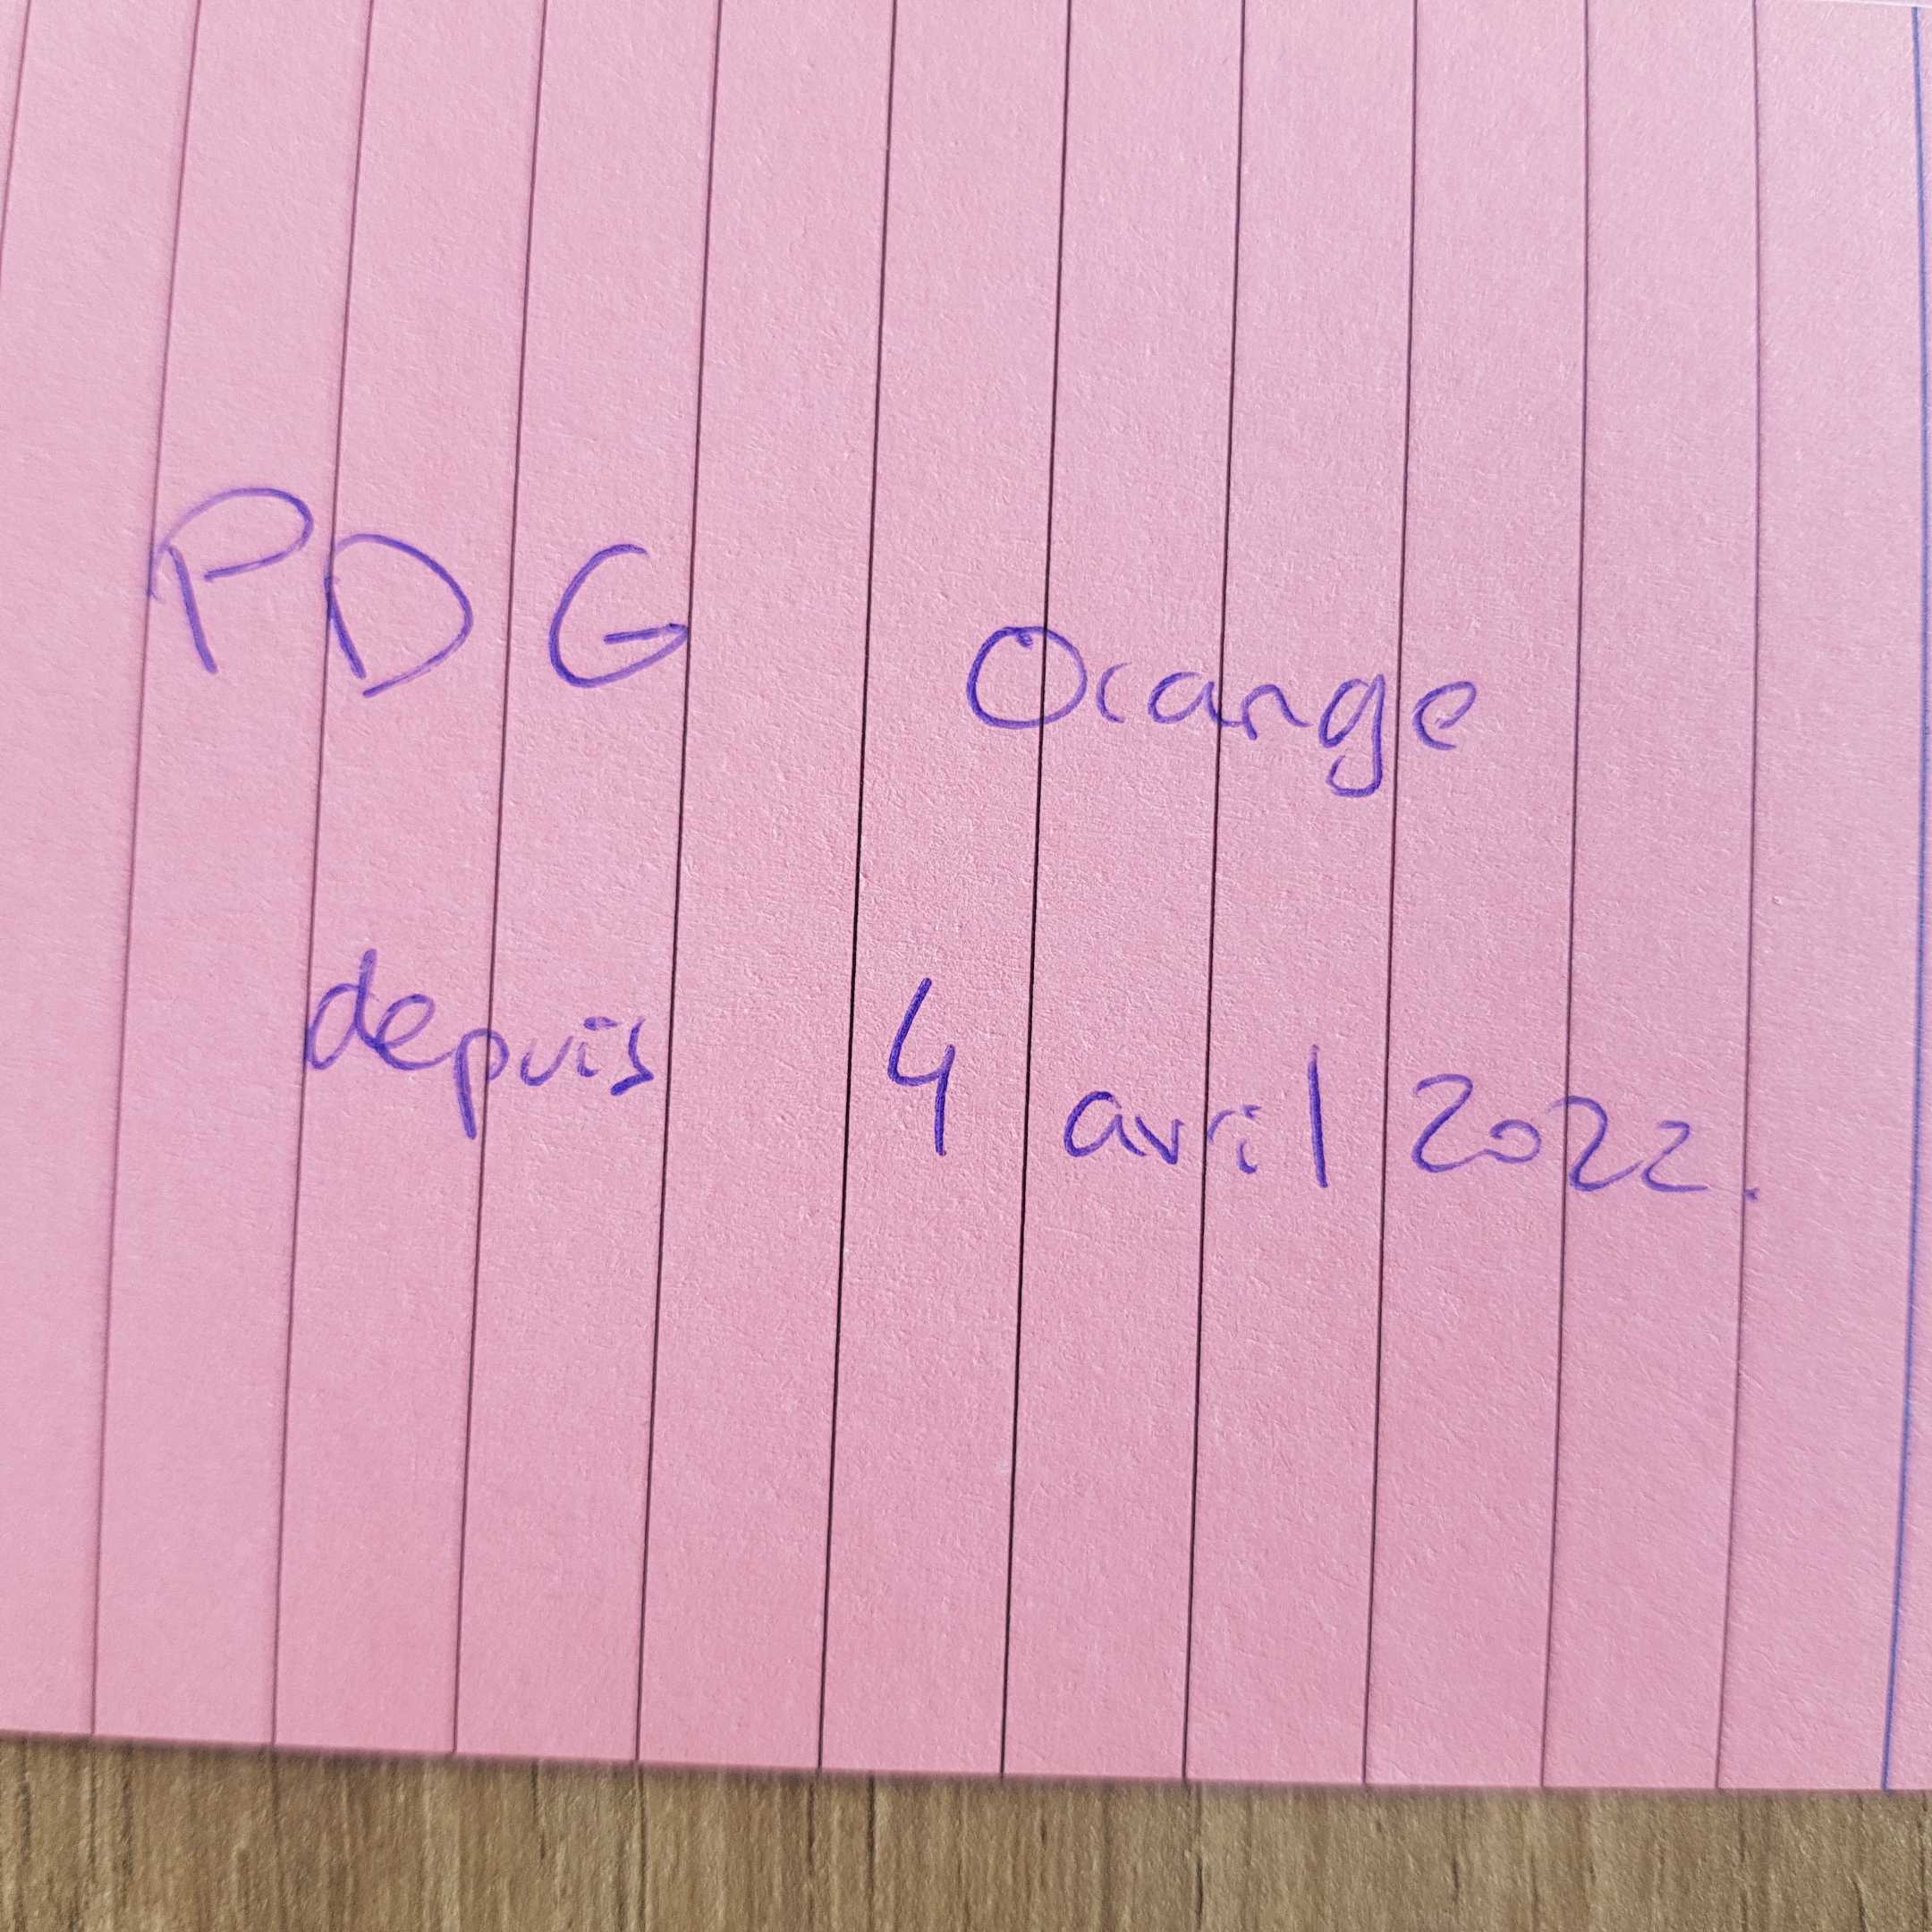 PDG Orange
depuis 4 avril 2022.